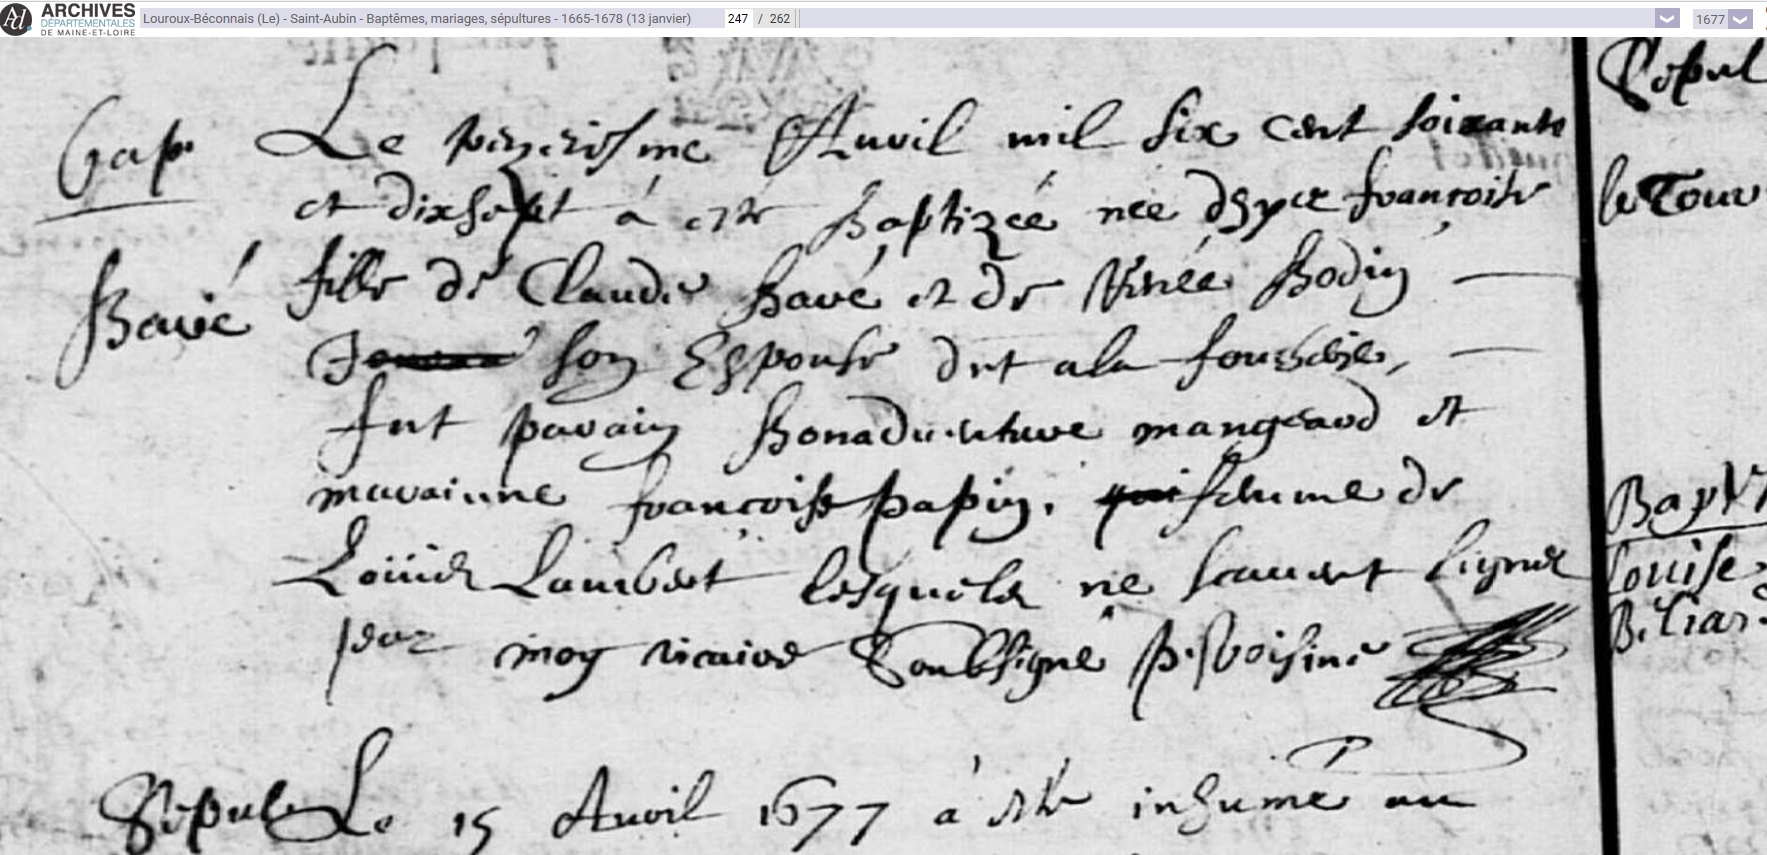 ARCHIVES
DÉPARTEMENTALES
DE MAINE-ET-LOIRE
Louroux-Béconnais (Le) - Saint-Aubin - Baptêmes, mariages, sépultures - 1665-1678 (13 janvier)
247 / 262
1677
Bap
Baué
Le Avril mil six cent soixante
et dixsept à esté Baptizée née d'hyer francoise
fille de Claude Baué et de Renée Bodin
son Espouse dt a la
fut parain Bonaduenture mangeard et
marainne francoise papin, femme de
Loüis Lambert lesquels ne scauent signer
par moy vicaire Soubsigné P. Voisine
Sepul Le 15 Auril 1677 à esté inhumé au
Sepul
le Tour
Bapt
Louise